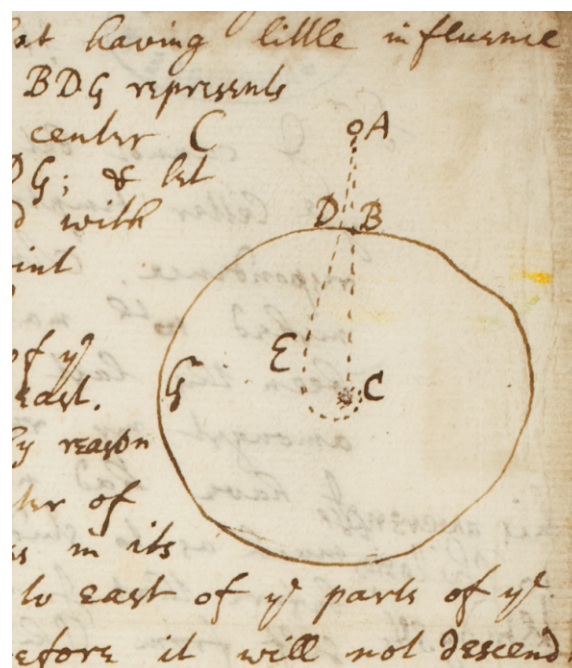 at having little influence
BDG represents
center C
DG; & let
d with
oint
of yͤ
east.
by reason
ter of
s in its
to east of yͤ parts of yͤ
efore it will not descend
A
D B
E
G
C